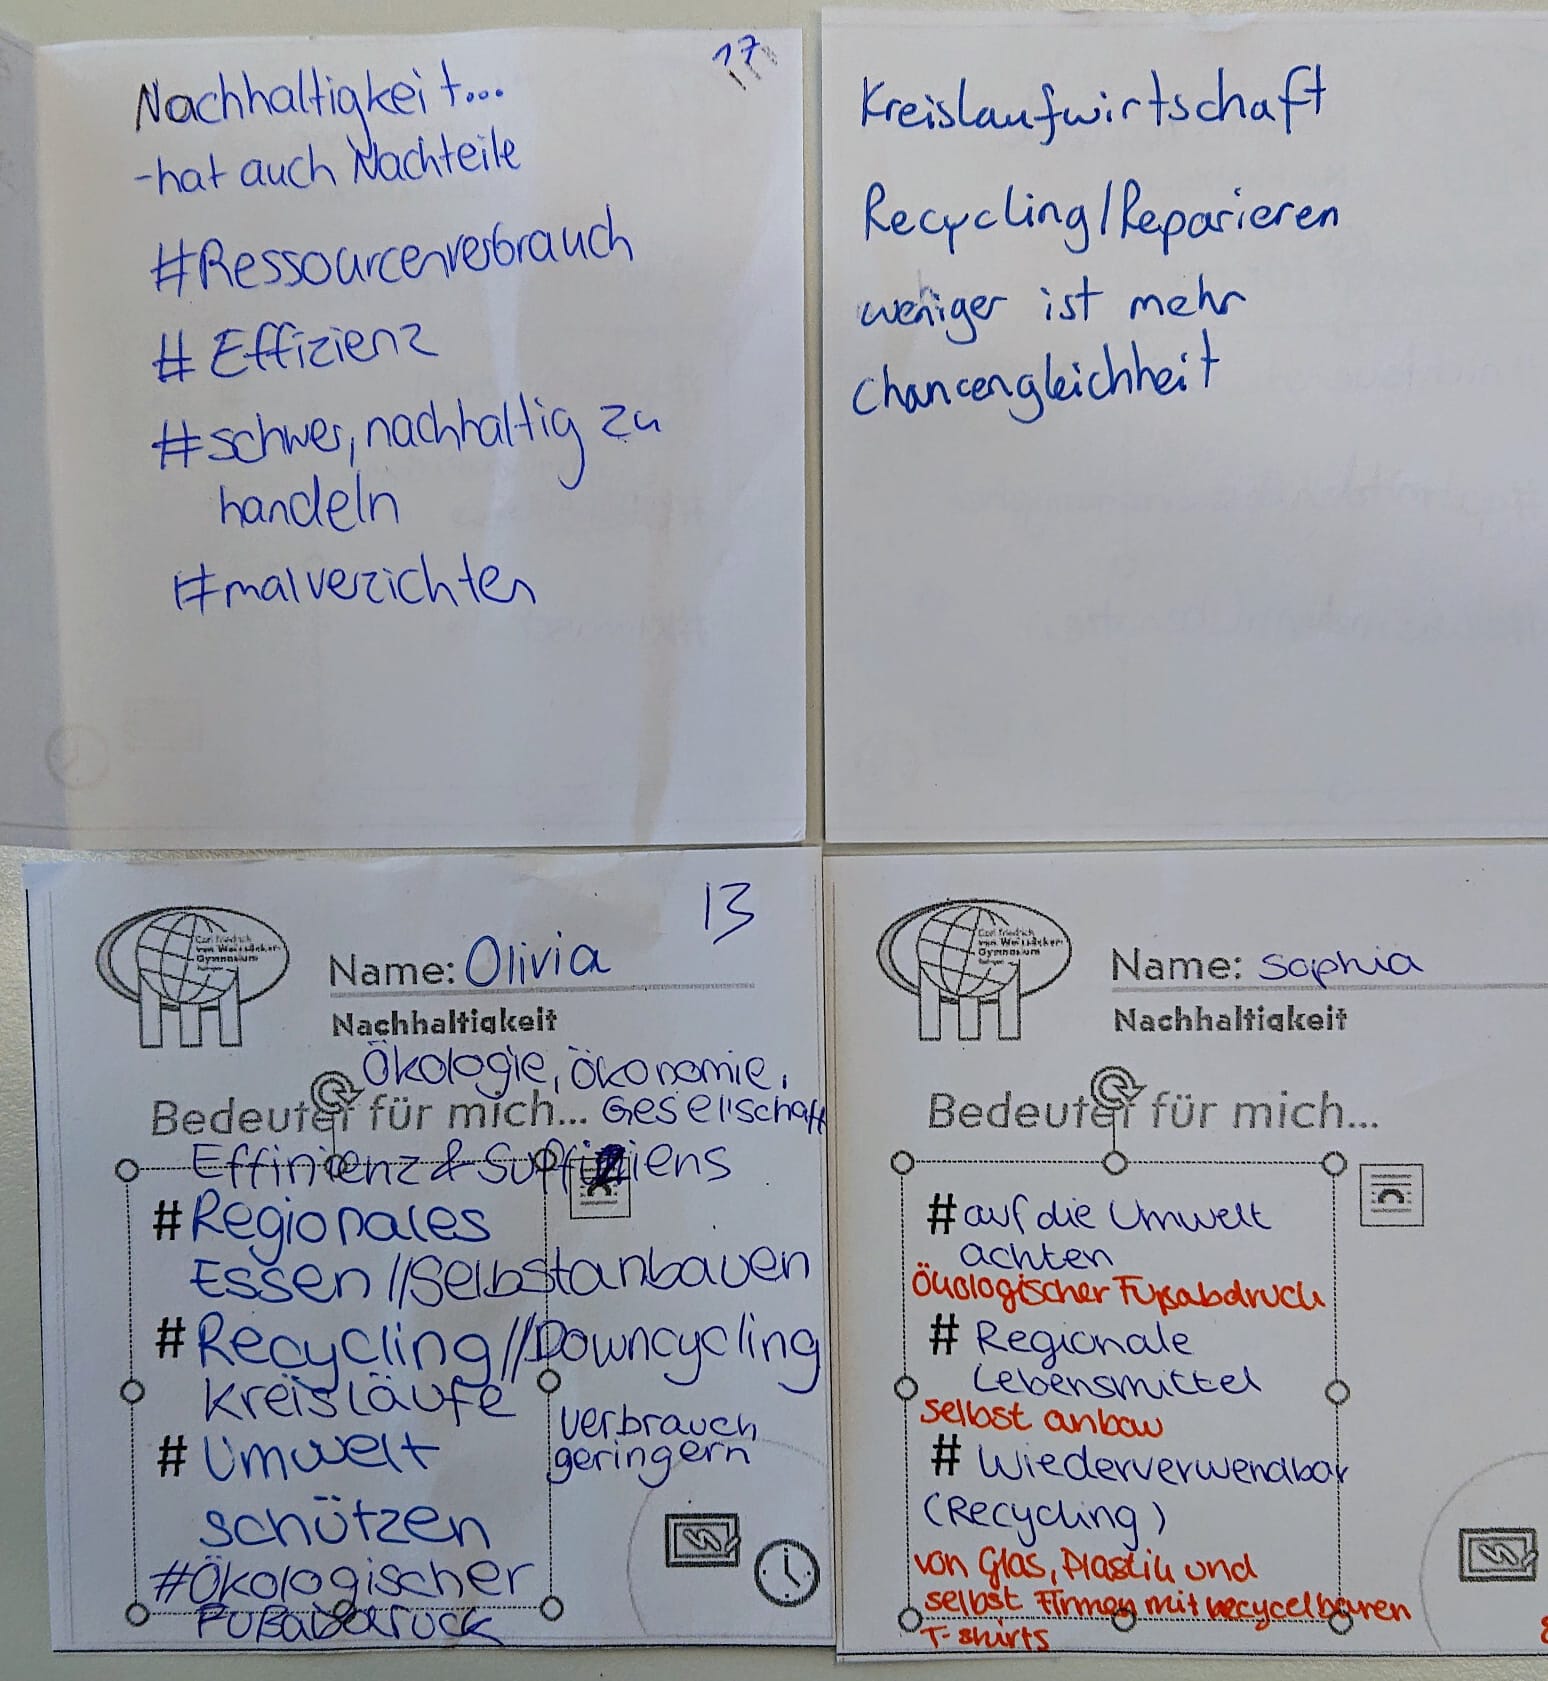 17
Nachhaltigkeit...
-hat auch Nachteile
#Ressourcenverbrauch
# Effizienz
#schwer, nachhaltig zu
handeln
#mal verzichten
Kreislaufwirtschaft
Recycling/Reparieren
weniger ist mehr
Chancengleichheit
13
Carl Friedrich
von Weizsäcker
Gymnasium
Name: Olivia
Nachhaltigkeit
Ökologie, Ökonomie,
Bedeutet für mich... Gesellschaft
Effinienz & Suffiziens
#Regionales
Essen//Selbstanbauen
#Recycling//Downcycling
Kreisläufe
verbrauch
geringern
# Umwelt
schützen
#Ökologischer
Fußabdruck
Carl Friedrich
von Weizsäcker
Gymnasium
Name: Sophia
Nachhaltigkeit
Bedeutet für mich...
# auf die Umwelt
achten
Ökologischer Fußabdruck
# Regionale
Lebensmittel
selbst anbau
# Wiederverwendbar
(Recycling)
von Glas, Plastik und
selbst Firmen mit recycelbaren
T-shirts